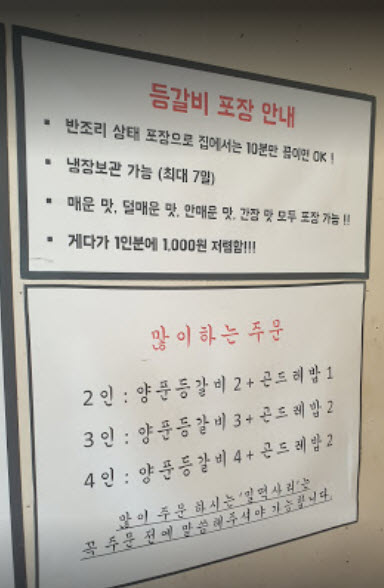 등갈비 포장 안내
▪ 반조리 상태 포장으로 집에서는 10분만 끓이면 OK !
▪ 냉장보관 가능 (최대 7일)
▪ 매운 맛, 덜매운 맛, 안매운 맛, 간장 맛 모두 포장 가능 !!
▪ 게다가 1인분에 1,000원 저렴함!!!
많이하는 주문
2인 : 양푼등갈비 2 + 곤드레밥 1
3인 : 양푼등갈비 3 + 곤드레밥 2
4인 : 양푼등갈비 4 + 곤드레밥 2
많이 주문 하시는 '메밀사리'는
꼭 주문 전에 말씀해주셔야 가능합니다.